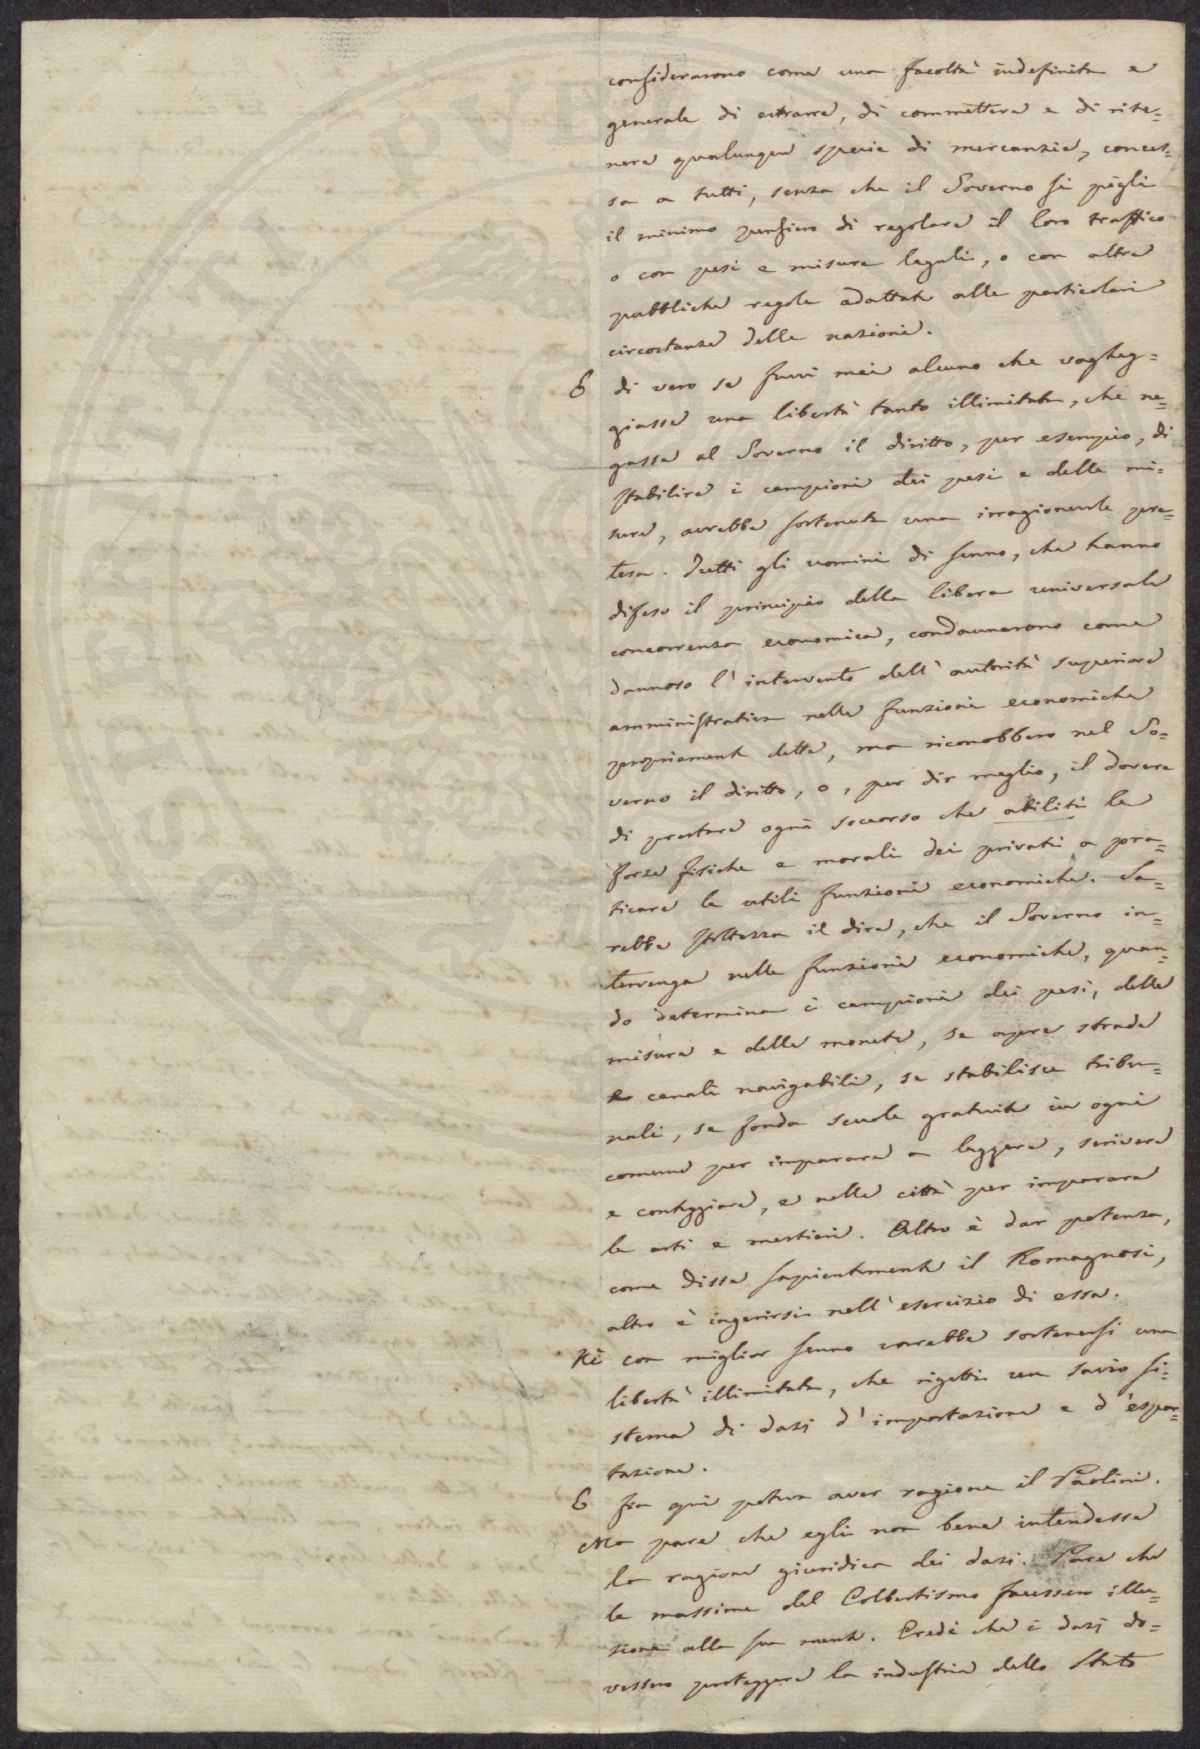 considerarono come una facoltà indefinita e
generale di estrarre, di commettere e di rite=
nere qualunque specie di mercanzie, conces=
sa a tutti, senza che il Governo si pigli
il minimo pensiero di regolare il loro traffico
o con pesi e misure legali, o con altre
pubbliche regole adattate alle particolari
circostanze delle nazioni.
E di vero se fuvvi mai alcuno che vagheg=
giasse una libertà tanto illimitata, che ne=
gasse al Governo il diritto, per esempio, di
stabilire i campioni dei pesi e delle mi=
sure, avrebbe sostenuta una irragionevole pre=
tesa. Tutti gli uomini di senno, che hanno
difeso il principio della libera universale
concorrenza economica, condannarono come
dannoso l'intervento dell'autorità superiore
amministrativa nelle funzioni economiche
propriamente dette, ma riconobbero nel Go=
verno il diritto, o, per dir meglio, il dovere
di prestare ogni soccorso che abiliti le
forze fisiche e morali dei privati a pra=
ticare le utili funzioni economiche. Sa=
rebbe stoltezza il dire, che il Governo in=
tervenga nelle funzioni economiche, quan=
do determina i campioni dei pesi, delle
misure e delle monete, se apre strade
o canali navigabili, se stabilisce tribu=
nali, se fonda scuole gratuite in ogni
comune per imparare a leggere, scrivere
e conteggiare, e nelle città per imparare
le arti e mestieri. Altro è dar potenza,
come disse sapientemente il Romagnosi,
altro è ingerirsi nell'esercizio di essa.
Nè con miglior senno vorrebbe sostenersi una
libertà illimitata, che rigetti un savio si=
stema di dazj d'importazione e d'espor=
tazione.
E fin qui poteva aver ragione il Paolini.
Ma pare che egli non bene intendesse
la ragione giuridica dei dazi. Pare che
le massime del Colbertismo facessero illu=
sione alla sua mente. Credè che i dazj do=
vessero proteggere la industria dello Stato